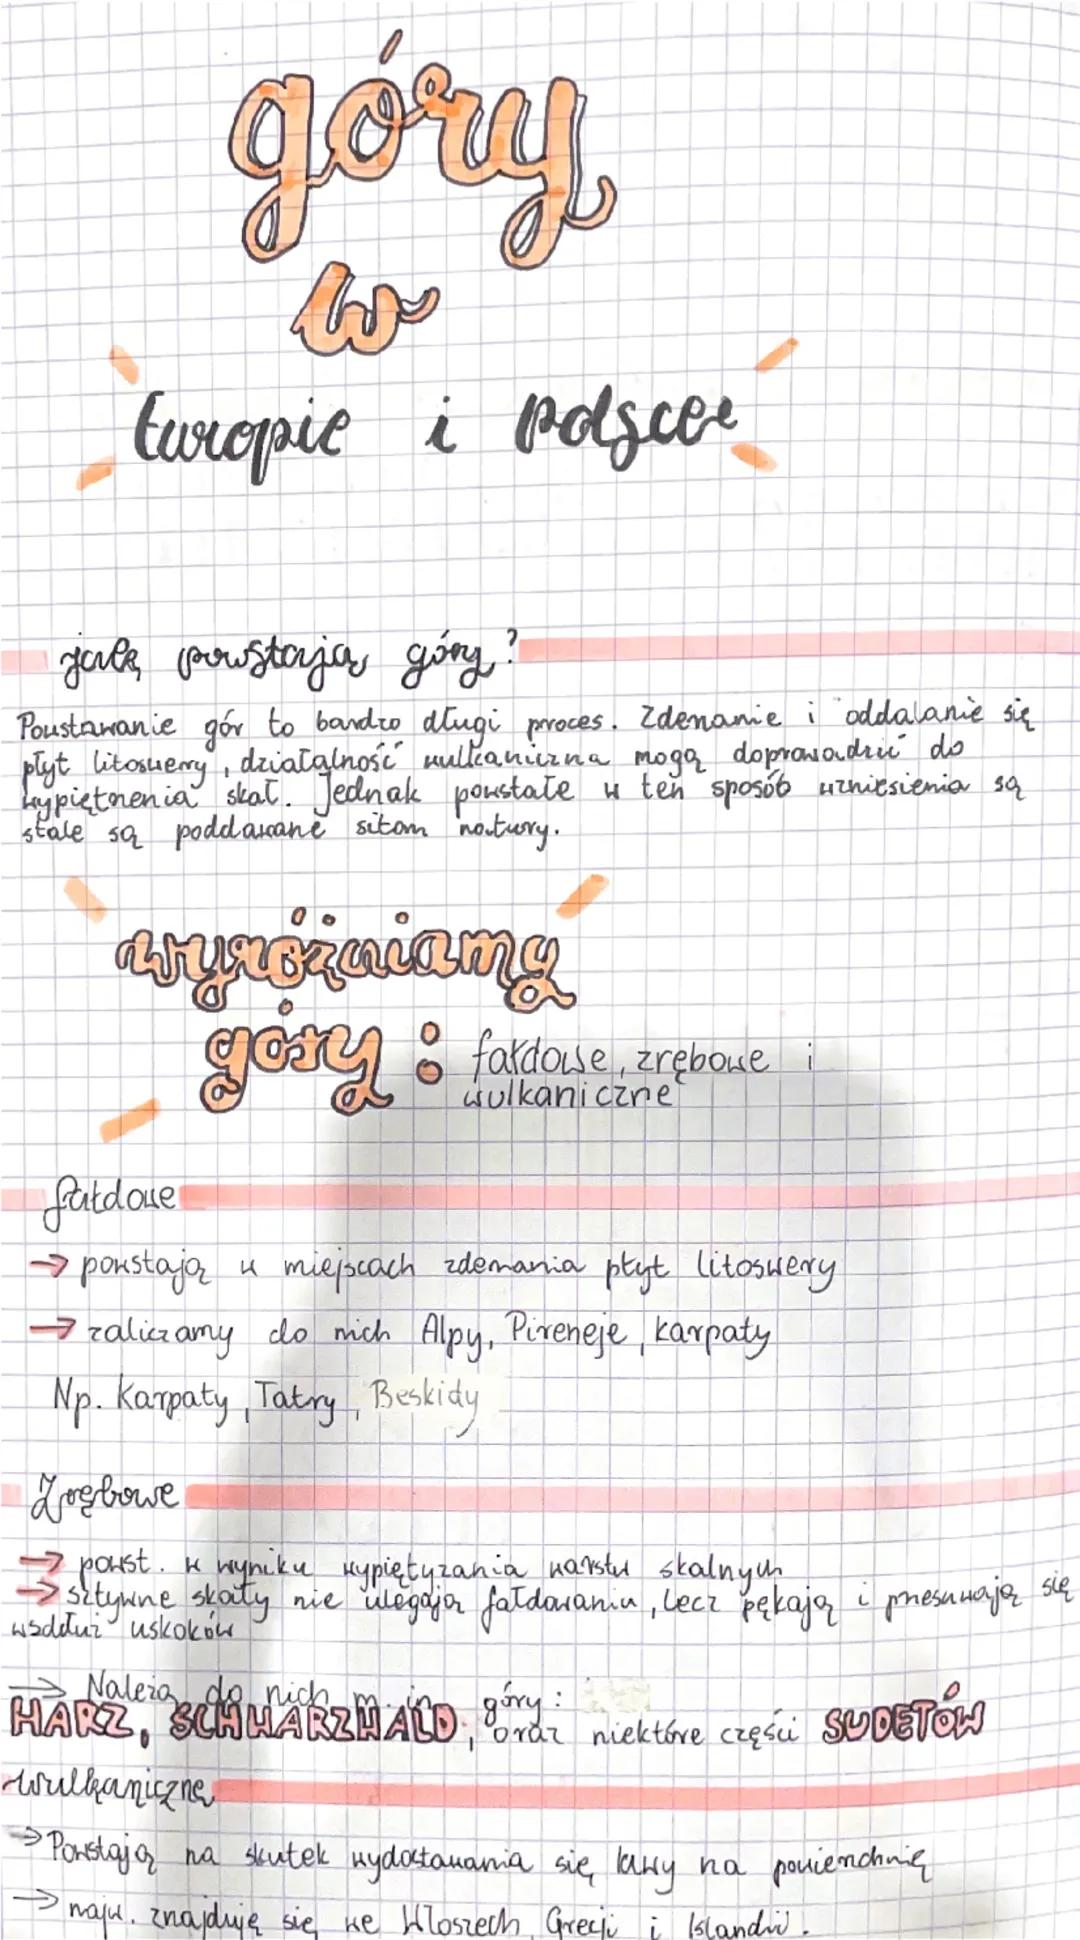 góry
w
Europie i Polsce
jak powstają góry?
Powstawanie gór to bardzo długi proces. Zderzanie i oddalanie się
płyt litoswery, działalność wulkaniczna mogą doprowadzić do
wypiętrzenia skał. Jednak powstałe w ten sposób wzniesienia są
stale są poddawane siłom natury.
wyróżniamy
góry: fałdowe, zrębowe i
wulkaniczne
fałdowe
→ powstają w miejscach zderzania płyt litoswery
→ zaliczamy do nich Alpy, Pireneje, Karpaty
Np. Karpaty, Tatry, Beskidy
Zrębowe
→ powst. w wyniku wypiętyrzania warstw skalnych
→ sztywne skały nie ulegają fałdowaniu, lecz pękają i przesuwają się
wsdłuż uskoków
→ Należą do nich m.in. góry:
HARZ, SCHWARZWALD, oraz niektóre części SUDETÓW
wulkaniczne
→ Powstają na skutek wydostawania się lawy na powierzchnię
→ najw. znajduję się we Włoszech, Grecji i Islandii.